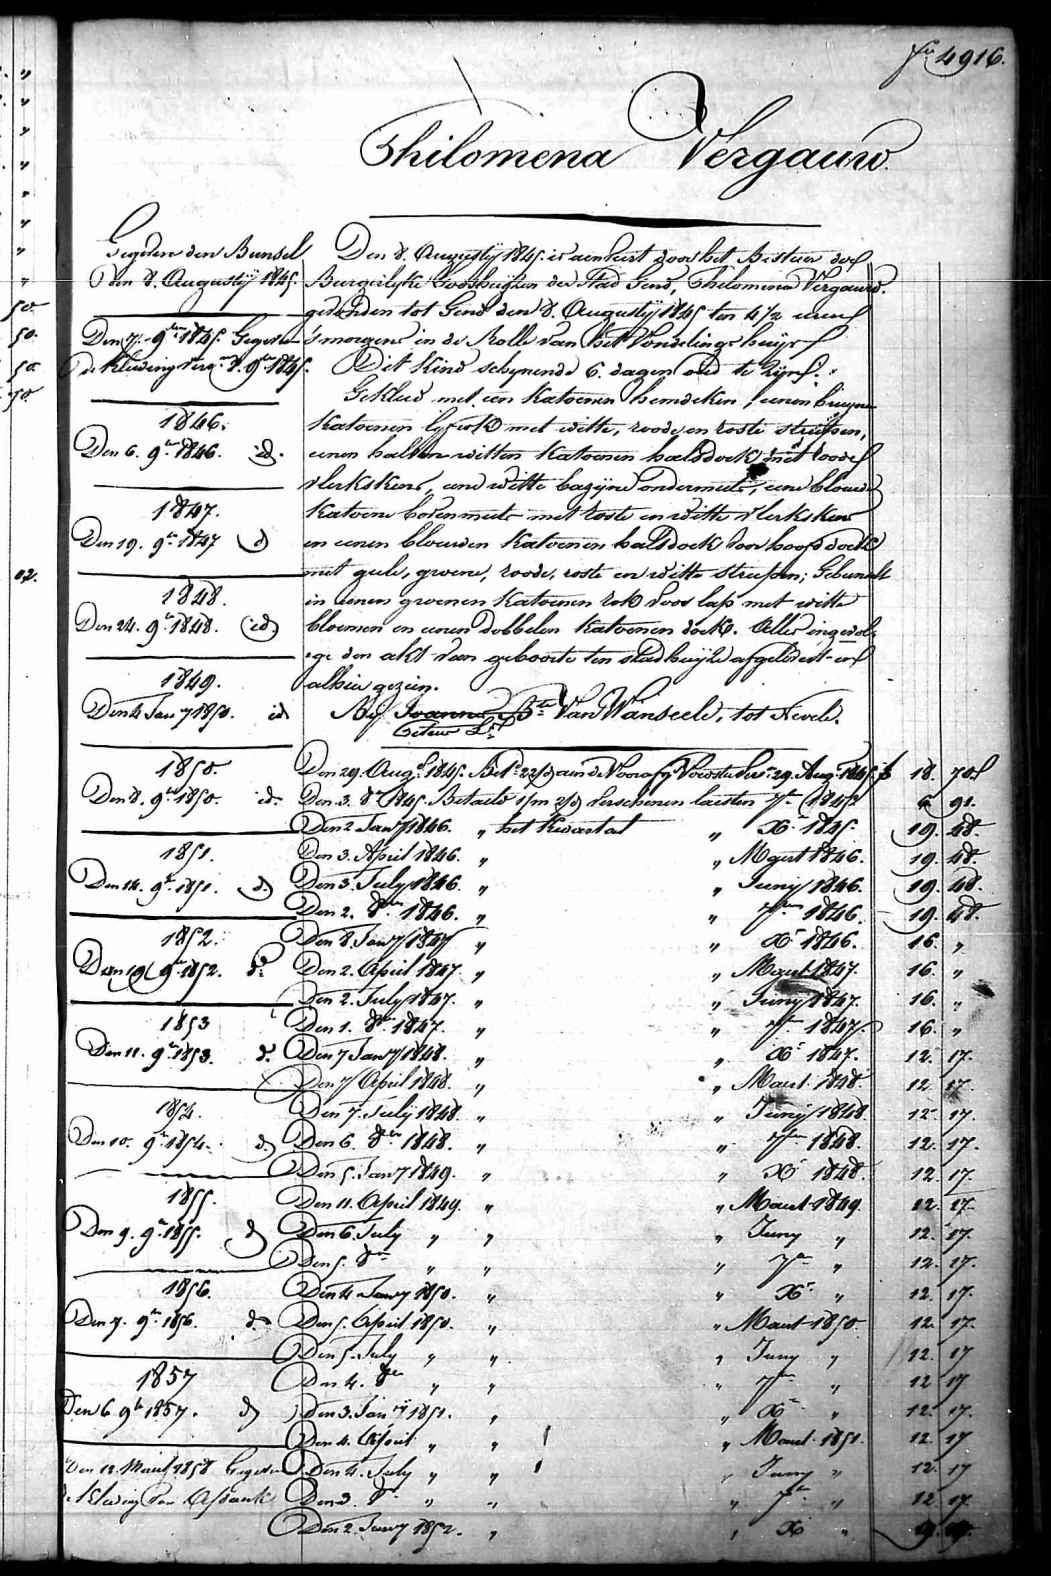 4916.
Philomena Vergauw.
Gegeven den Bunsel
den 8. Augustÿ 1845.
Den 7. 9ber 1845. Gegeven
de Kleeding 9ber 1845.
1846.
Den 6. 9br 1846. id.
1847.
Den 19. 9br 1847 d
1848.
Den 24. 9br 1848. id.
1849.
Den 4 Jany 1850. id
1850.
Den 8. 9br 1850. id.
1851.
Den 14. 9br 1851. d.
1852.
Den 19 9br 1852. d.
1853
Den 11. 9br 1853. d.
1854.
Den 10. 9br 1854. d
1855.
Den 9. 9br 1855. d
1856.
Den 7. 9br 1856. d
1857
Den 6 9br 1857. d
Den 12 Maert 1858 Gegeven
Kleeding
Den 8. Augustÿ 1845. is aenveert door het Bestuer der
Burgerlyke Godshuyzen der Stad Gend, Philomena Vergauw.
gevonden tot Gend den 8. Augustÿ 1845 ten 4 1/2 uren
's morgens in de Rolle van het Vondelingshuys
Dit Kind schynende 6. dagen oud te zyn.
Gekleed met een Katoenen hemdeken, eenen bruynen
Katoenen lyfrok met witte, roode en roste streepen,
eenen halven witten Katoenen halsdoek met roode
vlerkskens, eene witte bazyne ondermuts, eene blauwe
Katoene bovenmuts met roste en witte vlerkskens
en eenen blauwen Katoenen halsdoek voor hoofddoek
met geele, groene, roode, roste en witte streepen; Gebunselt
in eenen groenen Katoenen rok voor lap met witte
bloemen en eenen dobbelen Katoenen doek. Alles ingevol-
ge den akt van geboorte ten stadhuyze afgeleest en
alhier gezien.
Bij Joanna Bte Van Wanseele, tot Nevele.
Den 29. Augt 1845. 22 aen de Voorafg Voedster 29. Aug. 1845. 18. 70
Den 3. 8br 1845. Betaeld verschenen laesten 7br 1845 6 91.
Den 2 Jany 1846. " het Kwartael " Xr 1845. 19. 48.
Den 3. April 1846. " " Maert 1846. 19. 48.
Den 3. July 1846. " " Juny 1846. 19. 48.
Den 2. 8br 1846. " " 7br 1846. 19. 48.
Den 8. Jany 1847 " " Xr 1846. 16. "
Den 2. April 1847. " " Maert 1847. 16. "
Den 2. July 1847. " " Juny 1847. 16. "
Den 1. 8br 1847. " " 7br 1847 16. "
Den 7 Jany 1848. " " Xr 1847. 12. 17.
Den 7 April 1848. " " Maert 1848. 12 17.
Den 7. July 1848. " " Juny 1848 12. 17.
Den 6. 8br 1848. " " 7br 1848. 12. 17.
Den 5. Jany 1849. " " Xr 1848. 12. 17.
Den 11. April 1849. " " Maert 1849. 12. 17.
Den 6. July " " " Juny " 12. 17.
Den 5. 8br " " " 7br " 12. 17.
Den 4. Jany 1850. " " Xr " 12. 17.
Den 5. April 1850. " " Maert 1850. 12. 17.
Den 5. July " " " Juny " 12. 17
Den 4. 8br " " " 7br " 12 17
Den 3. Jany 1851. " " Xr " 12. 17.
Den 4. April " " " Maert 1851. 12. 17
Den 4. July " " " Juny " 12. 17
Den 3. 8br " " " 7br " 12 17.
Den 2. Jany 1852. " " X "